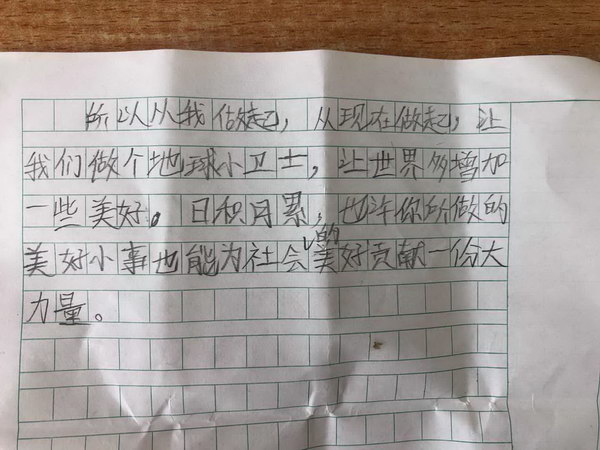 所以从我做起，从现在做起，让
我们做个地球小卫士，让世界多增加
一些美好。日积月累，也许你所做的
美好小事也能为社会的美好贡献一份大
力量。